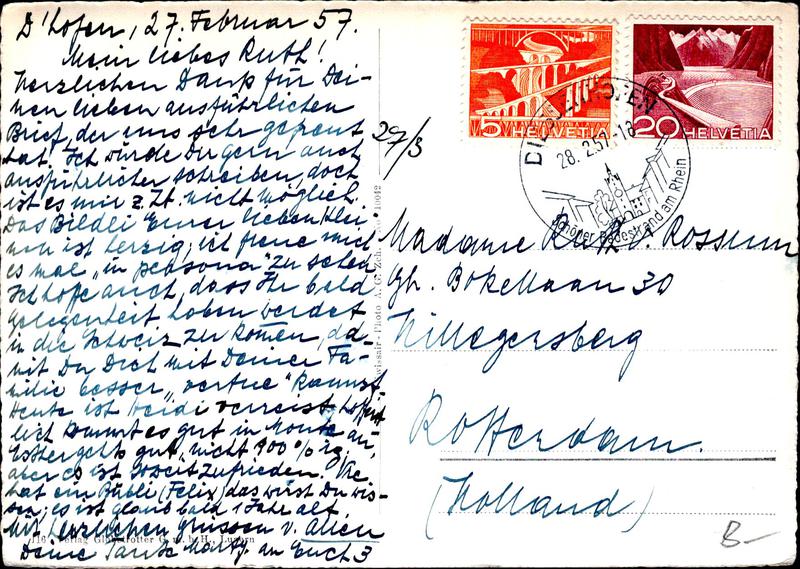 D'hofen, 27. Februar 57.
Mein liebes Ruth!
Herzlichen Dank für Dei-
nen lieben ausführlichen
Brief, der uns sehr gefreut
hat. Ich würde Dir gern auch
ausführlicher schreiben, doch
ist es mir z. Zt. nicht möglich.
Das Bildli Eurer lieben Klei-
nen ist herzig; ich freue mich
es mal "in persona" zu sehen
Ich hoffe auch, dass Ihr bald
Gelegenheit haben werdet
in die Schweiz zu komen, da-
mit Du Dich mit Deiner Fa-
milie besser
Heute ist Heidi verreist, hoffent-
lich kommt es gut in
gehts gut, nicht 100%ig,
aber es ist soweit zufrieden.
hat ein Bübli (Felix) das wirst Du wis-
sen; es ist glaub bald 1 Jahr alt.
Mit herzlichen Grüssen v. allen
Deine Tante Marty. an Euch 3
116 Verlag Globetrotter G. m. b. H., Luzern
Swissair-Photo A. G. Zch. No 10042
29/3
5 HELVETIA
20 HELVETIA
DIESSENHOFEN
28. 2. 57.-18
Schöner Badestrand am Rhein
Madame Ruth v. Rossum
Gh. Bokellaan 30
Hillegersberg
Rotterdam.
(Holland)
B-